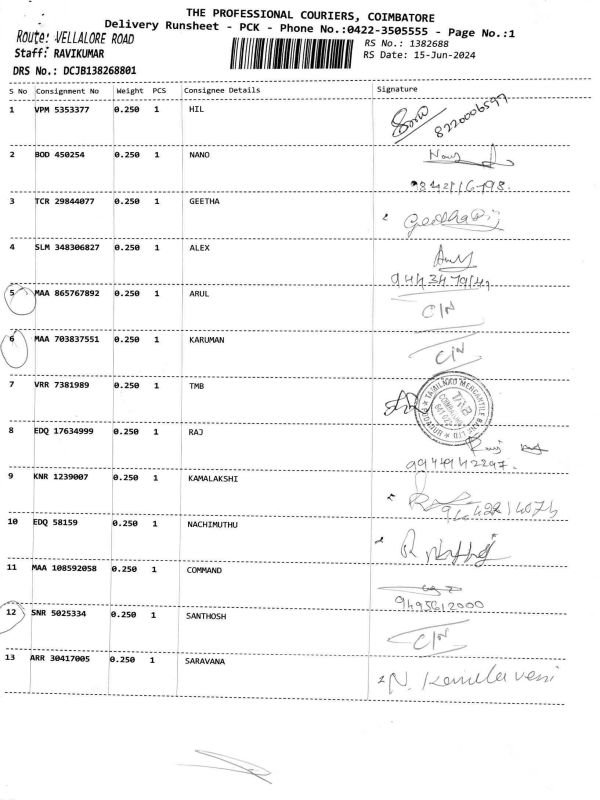 THE PROFESSIONAL COURIERS, COIMBATORE
Delivery Runsheet - PCK - Phone No.:0422-3505555 - Page No.:1
Route: VELLALORE ROAD
RS No.: 1382688
Staff: RAVIKUMAR
RS Date: 15-Jun-2024
DRS No.: DCJB138268801
S No Consignment No Weight PCS Consignee Details Signature
1 VPM 5353377 0.250 1 HIL 8220006597
2 BOD 450254 0.250 1 NANO
3 TCR 29844077 0.250 1 GEETHA
4 SLM 348306827 0.250 1 ALEX
5 MAA 865767892 0.250 1 ARUL C/N
6 MAA 703837551 0.250 1 KARUMAN C/N
7 VRR 7381989 0.250 1 TMB
8 EDQ 17634999 0.250 1 RAJ
9944142297.
9 KNR 1239007 0.250 1 KAMALAKSHI
10 EDQ 58159 0.250 1 NACHIMUTHU
11 MAA 108592058 0.250 1 COMMAND
9495612000
12 SNR 5025334 0.250 1 SANTHOSH C/N
13 ARR 30417005 0.250 1 SARAVANA N. Kamalaveni